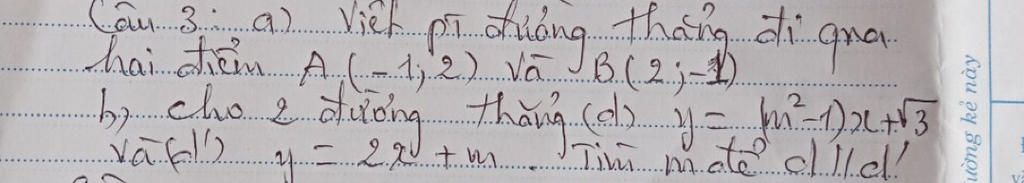 Câu 3: a) Viết pT đường thẳng đi qua
hai điểm A (-1; 2) và B (2; -1)
b) cho 2 đường thẳng (d) y = (m²-1)x + √3
và (d') y = 2x + m. Tìm m để d // d'
ường kẻ này